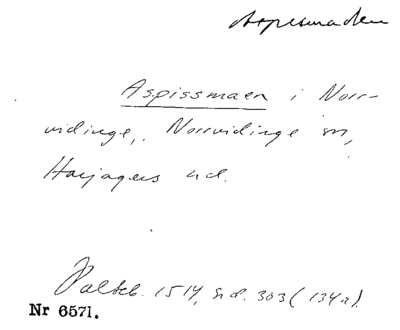 Aspesmaden
Aspissmaen i Norr-
vidinge, Norrvidinge sn,
Harjagers hd.
Palteb. 1514, sid. 303 (134r).
Nr 6571.